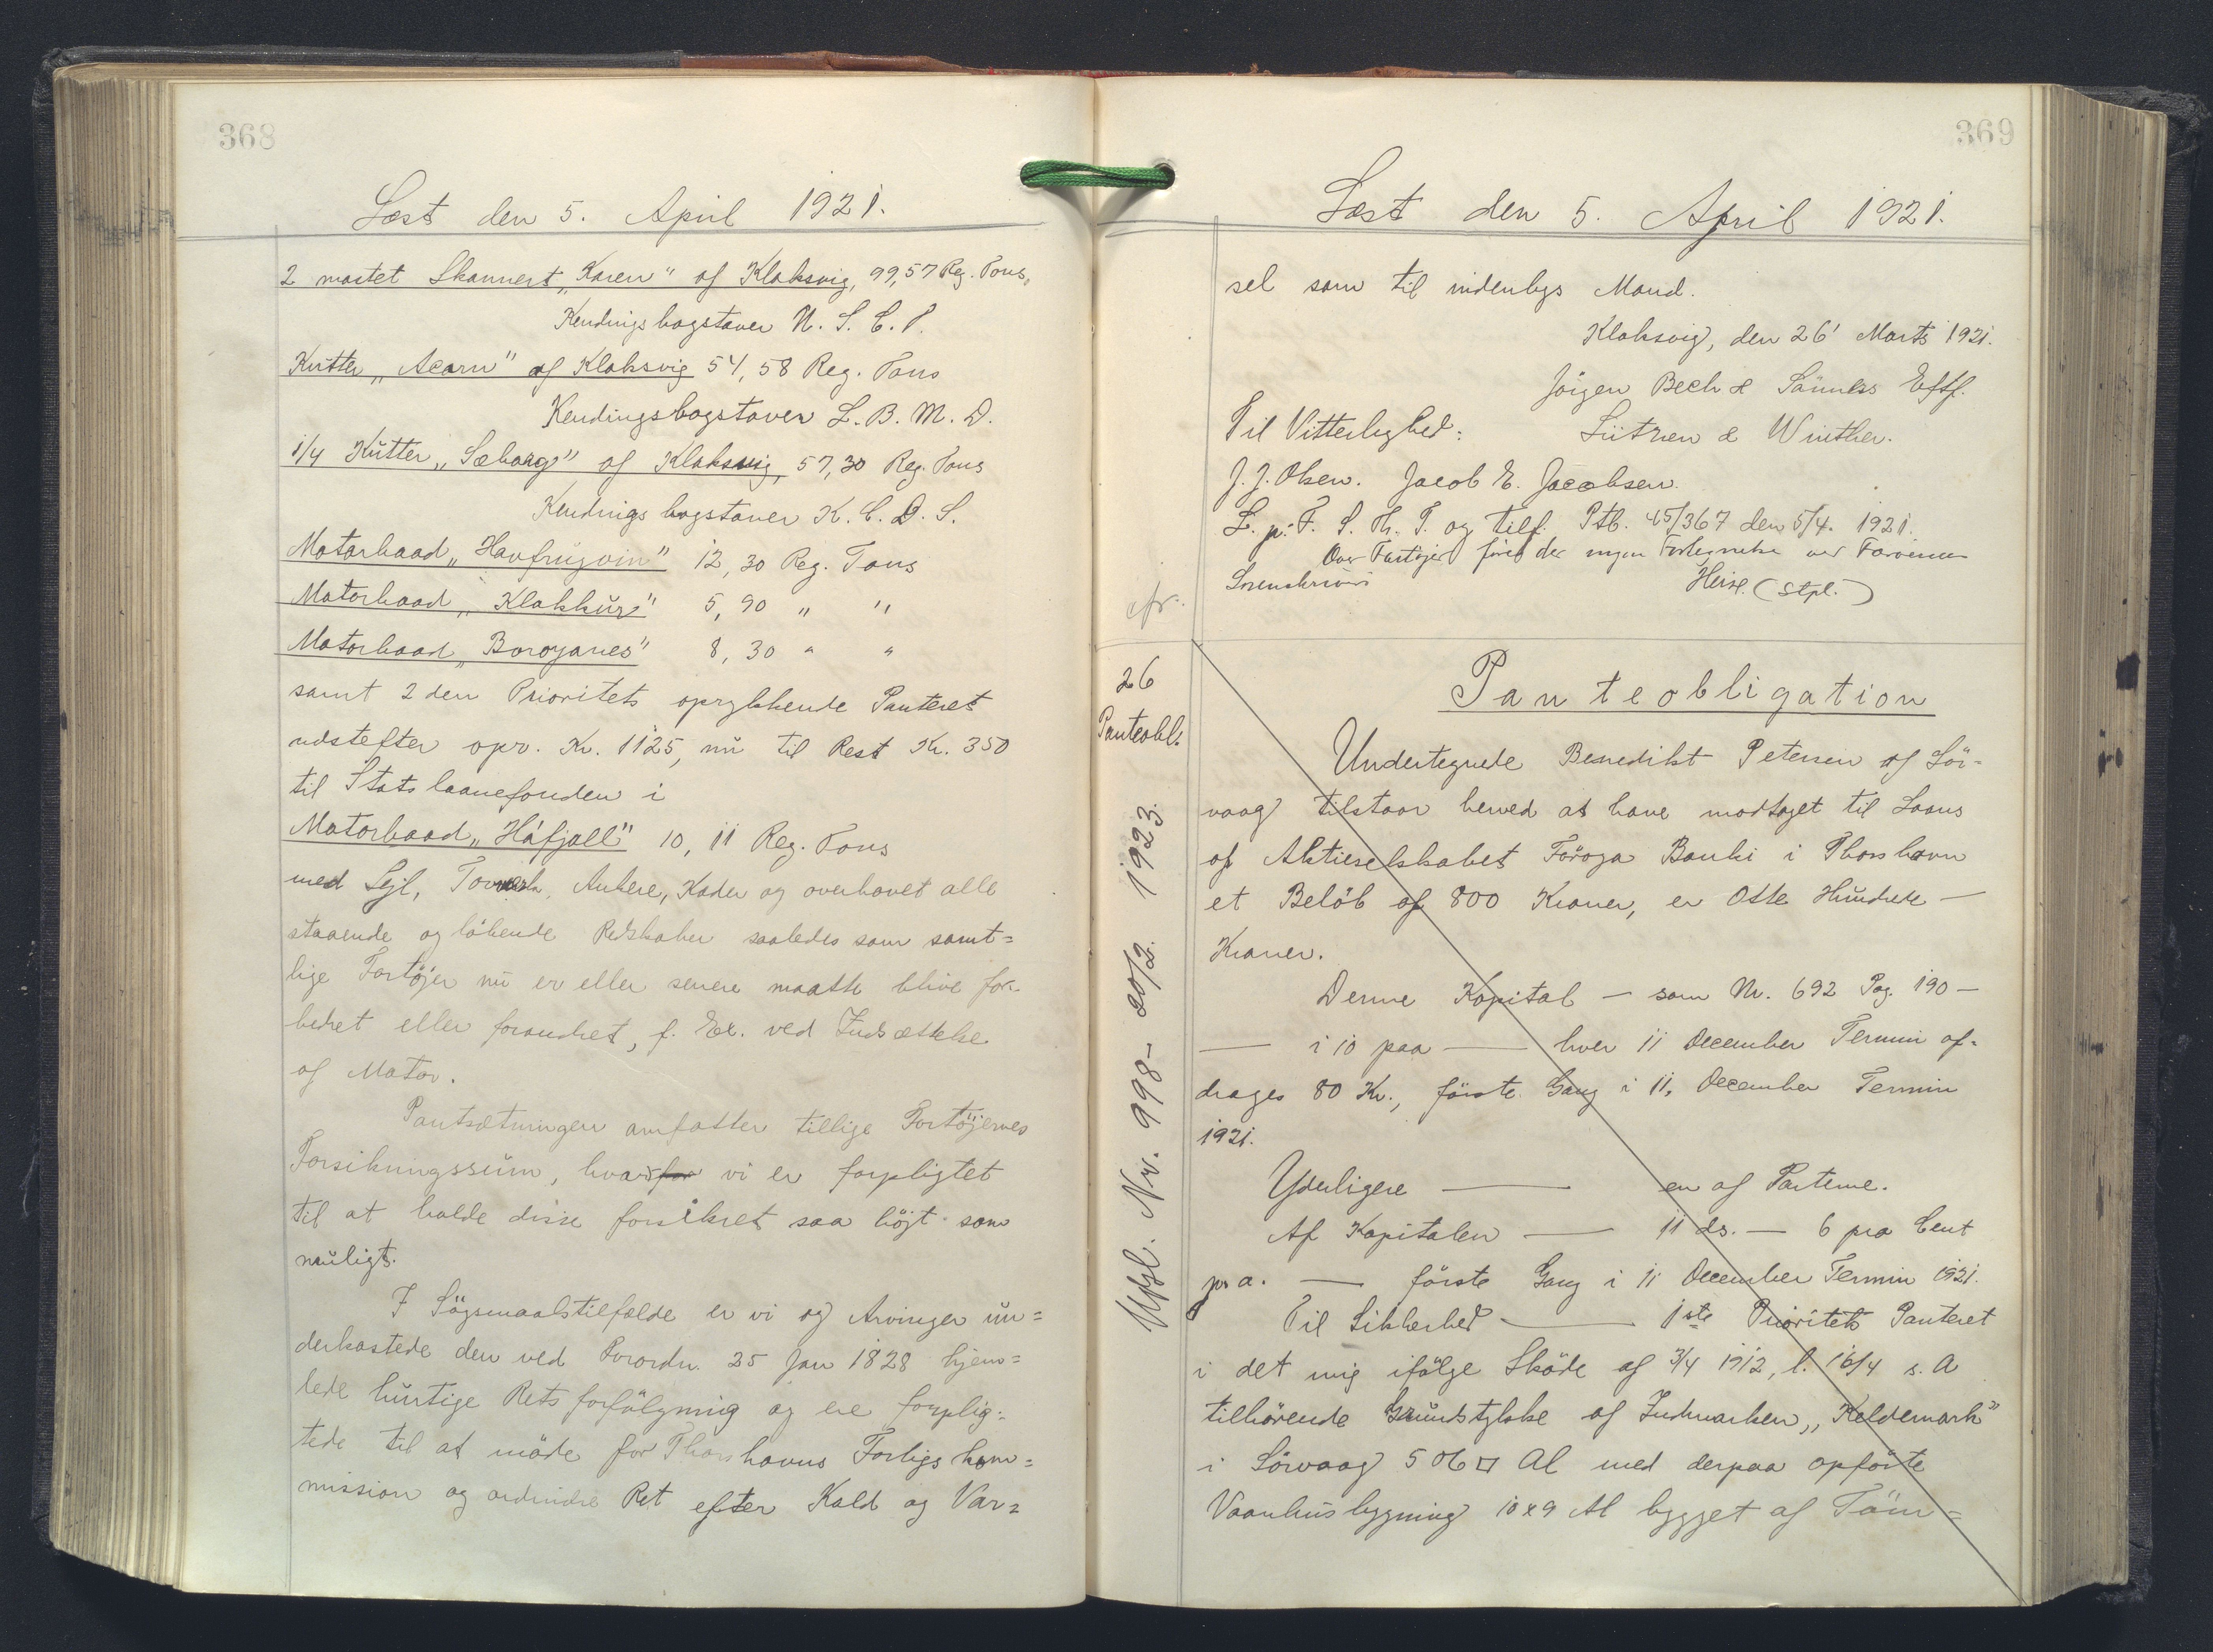 368
Læst den 5. April 1921.
2 mastet Skonnert „Karen" af Klaksvig, 99,57 Reg. Tons,
Kendingsbogstaver N. S. C. P.
Kutter „Acorn" af Klaksvig 54,58 Reg. Tons
Kendingsbogstaver L. B. M. D.
1/4 Kutter „Søborg" af Klaksvig, 57,30 Reg. Tons
Kendings bogstaver K. C. D. S.
Motorbaad „Havfrugvin" 12,30 Reg. Tons
Motorbaad „Klakkur" 5,90 " "
Motorbaad „Boroyarnes" 8,30 " "
samt 2den Prioritets oprykkende Panteret
næstefter opr. Kr. 1125, nu til Rest Kr. 350
til Stats laanefonden i
Motorbaad „Háfjall" 10,11 Reg. Tons
med Sejl, Ankere, Kæder og overhovet alle
staaende og løbende Redskaber saaledes som samt=
lige Fartøjer nu er eller senere maatte blive for-
bedret eller forandret, f. Ex. ved Indsættelse
af Motor.
Pantsætningen omfatter tillige Fartøjernes
Forsikringssum, hvorfor vi er forpligtet
til at holde disse forsikret saa højt som
muligt.
I Søgsmaalstilfælde er vi og Arvinger un=
derkastede den ved Forordn. 25 Jan 1828 hjem=
lede hurtige Rets forfølgning og ere forplig=
tede til at møde for Thorshavns Forligs kom=
mission og ordinære Ret efter Kald og Var=
369
Læst den 5. April 1921.
sel som til indenbys Mand.
Klaksvig, den 26' Marts 1921.
Jörgen Bech & Sönners Eftf.
Til Vitterlighed: Lützen & Winther.
J. J. Olsen. Jacob E. Jacobsen.
L. p. F. S. Th. T. og tilf. Ptb. 45/367 den 5/4. 1921.
Over Fartöjer föres der ingen Fortegnelse ved Færöernes
Sorenskriveri Heise. (Stpl.)
cfr.
26
Panteobl.
Udsl. Nr. 998- 20/2. 1923.
Panteobligation
Undertegnede Benedikt Petersen af Sör-
vaag tilstaar herved at have modtaget til Laans
af Aktieselskabet Föroya Banki i Thorshavn
et Belöb af 800 Kroner, er Otte Hundrede —
Kroner.
Denne Kapital — som Nr. 692 Pag. 190 —
— i 10 paa — hver 11 December Termin af-
drages 80 Kr., förste Gang i 11. December Termin
1921.
Yderligere — en af Parterne.
Af Kapitalen — 11 ds. — 6 pro Cent
p. a. — förste Gang i 11 December Termin 1921.
Til Sikkerhed — 1ste Prioritets Panteret
i det mig ifölge Sköde af 3/4 1912, l. 16/4 s. A
tilhörende Grundstykke af Indmarken „Keldemark"
i Sörvaag 506 □ Al med derpaa opförte
Vaanhusbygning 10x9 Al bygget af Töm=